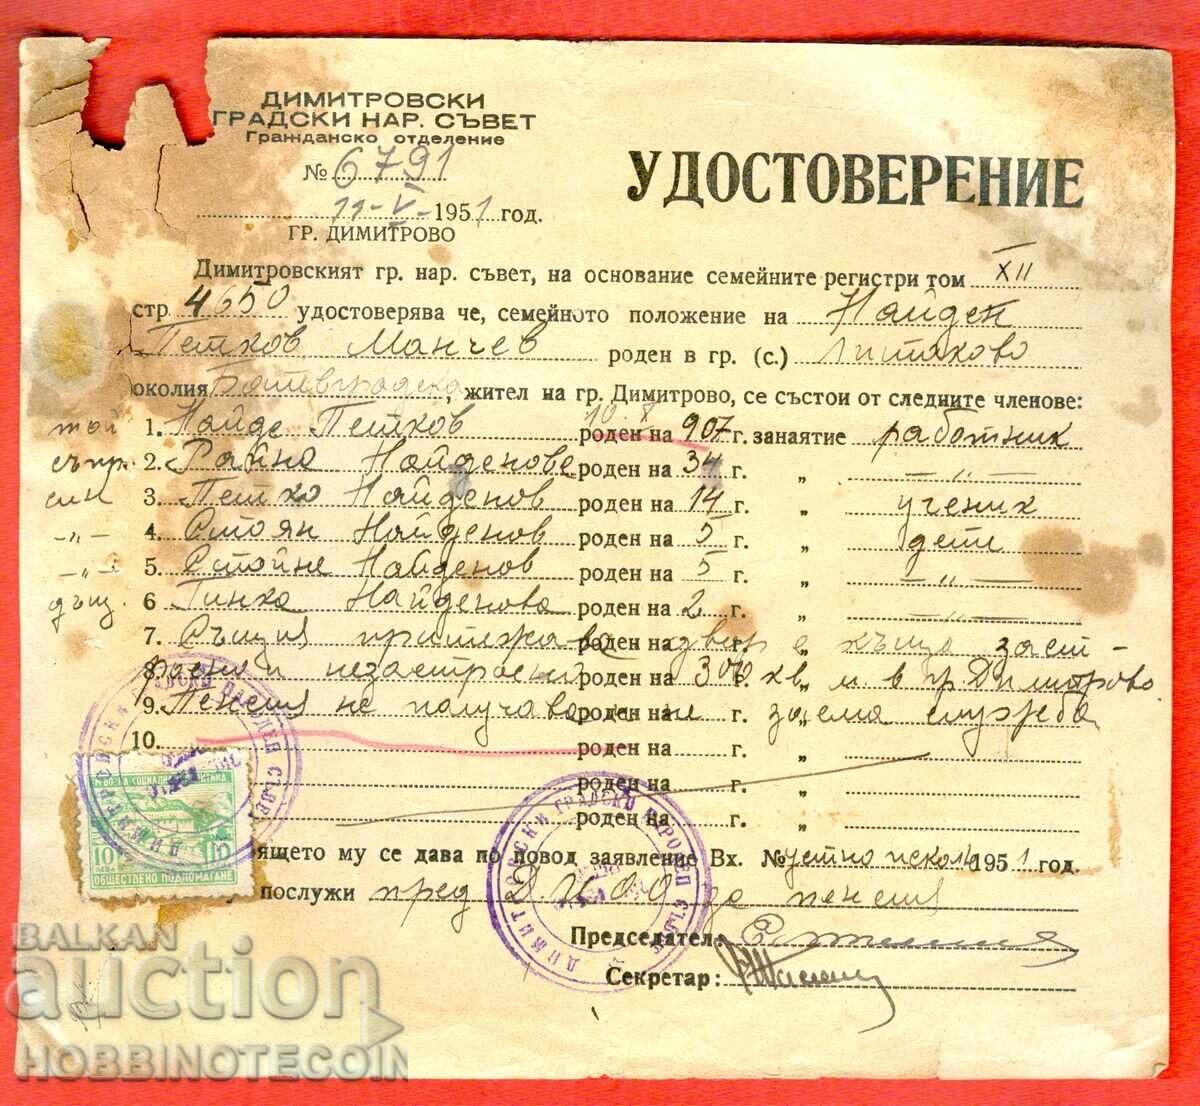 ДИМИТРОВСКИ
ГРАДСКИ НАР. СЪВЕТ
Гражданско отделение
№ 6791
11-V-1951 год.
ГР. ДИМИТРОВО
УДОСТОВЕРЕНИЕ
Димитровският гр. нар. съвет, на основание семейните регистри том XII
стр 4650 удостоверява че, семейното положение на Найден
Петков Манчев роден в гр. (с.) Литаково
околия Ботевградска, жител на гр. Димитрово, се състои от следните членове:
той 1. Найде Петков роден на 10.X 907 г. занаятие работник
съпр. 2. Райна Найденове роден на 34 г. „ —„—
син 3. Петко Найденов роден на 14 г. „ ученик
—„— 4. Стоян Найденов роден на 5 г. „ дете
—„— 5. Стойне Найденов роден на 5 г. „ —„—
дъщ. 6 Гинка Найденова роден на 2 г. „ —„—
7. Същия притежава роден на двор с къща заст-
8. роено и незастроени роден на 300 кв. м. в гр. Димитрово
9. Пенсия не получава роден на и не г. заема служба
10. роден на г. „
роден на г. „
роден на г. „
ящето му се дава по повод заявление Вх. № устно искане 1951 год.
послужи пред ДИОО за пенсия
Председател:
Секретар:
ДИМИТРОВСКИ ГРАДСКИ НАРОДЕН СЪВЕТ
ДИМИТРОВСКИ ГРАДСКИ НАРОДЕН СЪВЕТ
10 ЛЕВА 10
ОБЩЕСТВЕНО ПОДПОМАГАНЕ
BALKAN
auction
HOBBINOTECOIN